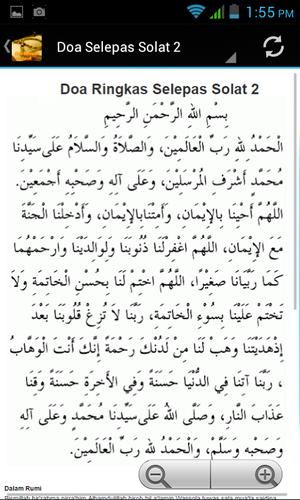 1:55 PM
Doa Selepas Solat 2
Doa Ringkas Selepas Solat 2
بِسْمِ اللهِ الرَّحْمَنِ الرَّحِيمِ
الْحَمْدُ لِلهِ رَبِّ الْعَالَمِيْنَ، وَالصَّلَاةُ وَالسَّلَامُ عَلَى سَيِّدِنَا
مُحَمَّدٍ أَشْرَفِ الْمُرْسَلِيْنَ، وَعَلَى آلِهِ وَصَحْبِهِ أَجْمَعِيْنَ.
اللَّهُمَّ أَحْيِنَا بِالإِيْمَانِ، وَأَمْتِنَابِالإِيْمَانِ، وَأَدْخِلْنَا الْجَنَّةَ
مَعَ الإِيْمَانِ، اللَّهُمَّ اغْفِرْلَنَا ذُنُوبَنَا وَلِوَالِدَيْنَا وَارْحَمْهُمَا
كَمَا رَبَّيَانَا صَغِيْرًا، اللَّهُمَّ اخْتِمْ لَنَا بِحُسْنِ الْخَاتِمَةِ وَلَا
تَخْتِمْ عَلَيْنَا بِسُوْءِ الْخَاتِمَةِ، رَبَّنَا لَا تُزِغْ قُلُوبَنَا بَعْدَ
إِذْهَدَيْتَنَا وَهَبْ لَنَا مِنْ لَدُنْكَ رَحْمَةً إِنَّكَ أَنْتَ الْوَهَّابُ
، رَبَّنَا آتِنَا فِي الدُّنْيَا حَسَنَةً وَفِي الآخِرَةِ حَسَنَةً وَقِنَا
عَذَابَ النَّارِ، وَصَلَّى اللهُ عَلَى سَيِّدِنَا مُحَمَّدٍ وَعَلَى آلِهِ
وَصَحْبِهِ وَسَلَّمَ، وَالْحَمْدُ لِلهِ رَبِّ الْعَالَمِيْنَ.
Dalam Rumi